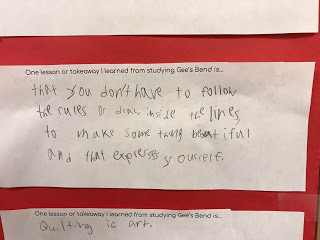 One lesson or takeaway I learned from studying Gee's Bend is...
that you don't have to follow
the rules or draw inside the lines
to make some thing beatiful
and that expreses yourself.
One lesson or takeaway I learned from studying Gee's Bend is...
Quilting is art.